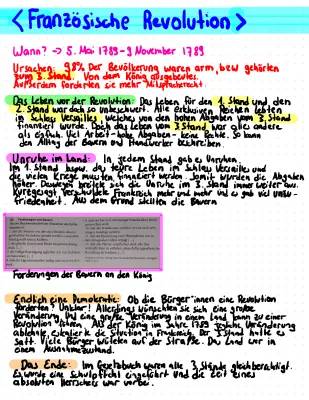 < Französische Revolution >
Wann? -> 5. Mai 1789 - 9 November 1789
Ursachen: 98% Der Bevölkerung waren arm, bzw gehörten
zum 3. Stand. Von dem König ausgebeutet.
Außerdem forderten sie mehr Mitspracherecht.
Das Leben vor der Revolution: Das Leben für den 1. Stand und den
2. Stand war doch so unbeschwert. Alle exklusiven Reichen lebten
im Schloss Versailles, welches von den hohen Abgaben vom 3. Stand
finanziert wurde. Doch das Leben vom 3. Stand war alles andere
als einfach. Viel Arbeit - hohe Abgaben - keine Rechte. So kann
den Alltag der Bauern und Handwerker beschreiben.
Unruhe im Land: In jedem Stand gab es Unruhen.
Im 1. Stand bspw. das teure Leben im Schloss Versailles und
die vielen Kriege mussten finanziert werden. Somit wurden die Abgaben
höher. Deswegen breitete sich die Unruhe im 3. Stand immer weiter aus.
Kurzgesagt verschuldete Frankreich mehr und mehr und es gab viel Un-
friedenheit. Aus dem Grund stellten die Bauern
Forderungen der Bauern an den König
Endlich eine Demokratie: Ob die Bürger*innen eine Revolution
forderten? Unklar! Allerdings wünschten sie sich eine große
Veränderung. Und eine große Veränderung in einem Land kann zu einer
Revolution führen. Als der König im Jahre 1789 jegliche Veränderung
ablehnte, eskalierte die Situation in Frankreich. Der 3. Stand hatte es
satt. Viele Bürger wüteten auf der Straße. Das Land war in
einem Ausnahmezustand.
Das Ende: Im Gesetzbuch waren alle 3. Stände gleichberechtigt.
Es wurde eine Schulpflicht eingeführt und die Zeit eines
absoluten Herrschers war vorbei.